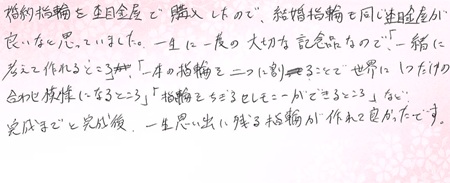 婚約指輪を杢目金屋で購入したので、結婚指輪も同じ杢目金屋が
良いなと思っていました。一生に一度の大切な記念品なので、「一緒に
考えて作れるところ」「一本の指輪を二つに割ることで世界に1つだけの
合わせ模様になるところ」「指輪をちぎるセレモニーができるところ」など
完成までと完成後、一生思い出に残る指輪が作れて良かったです。